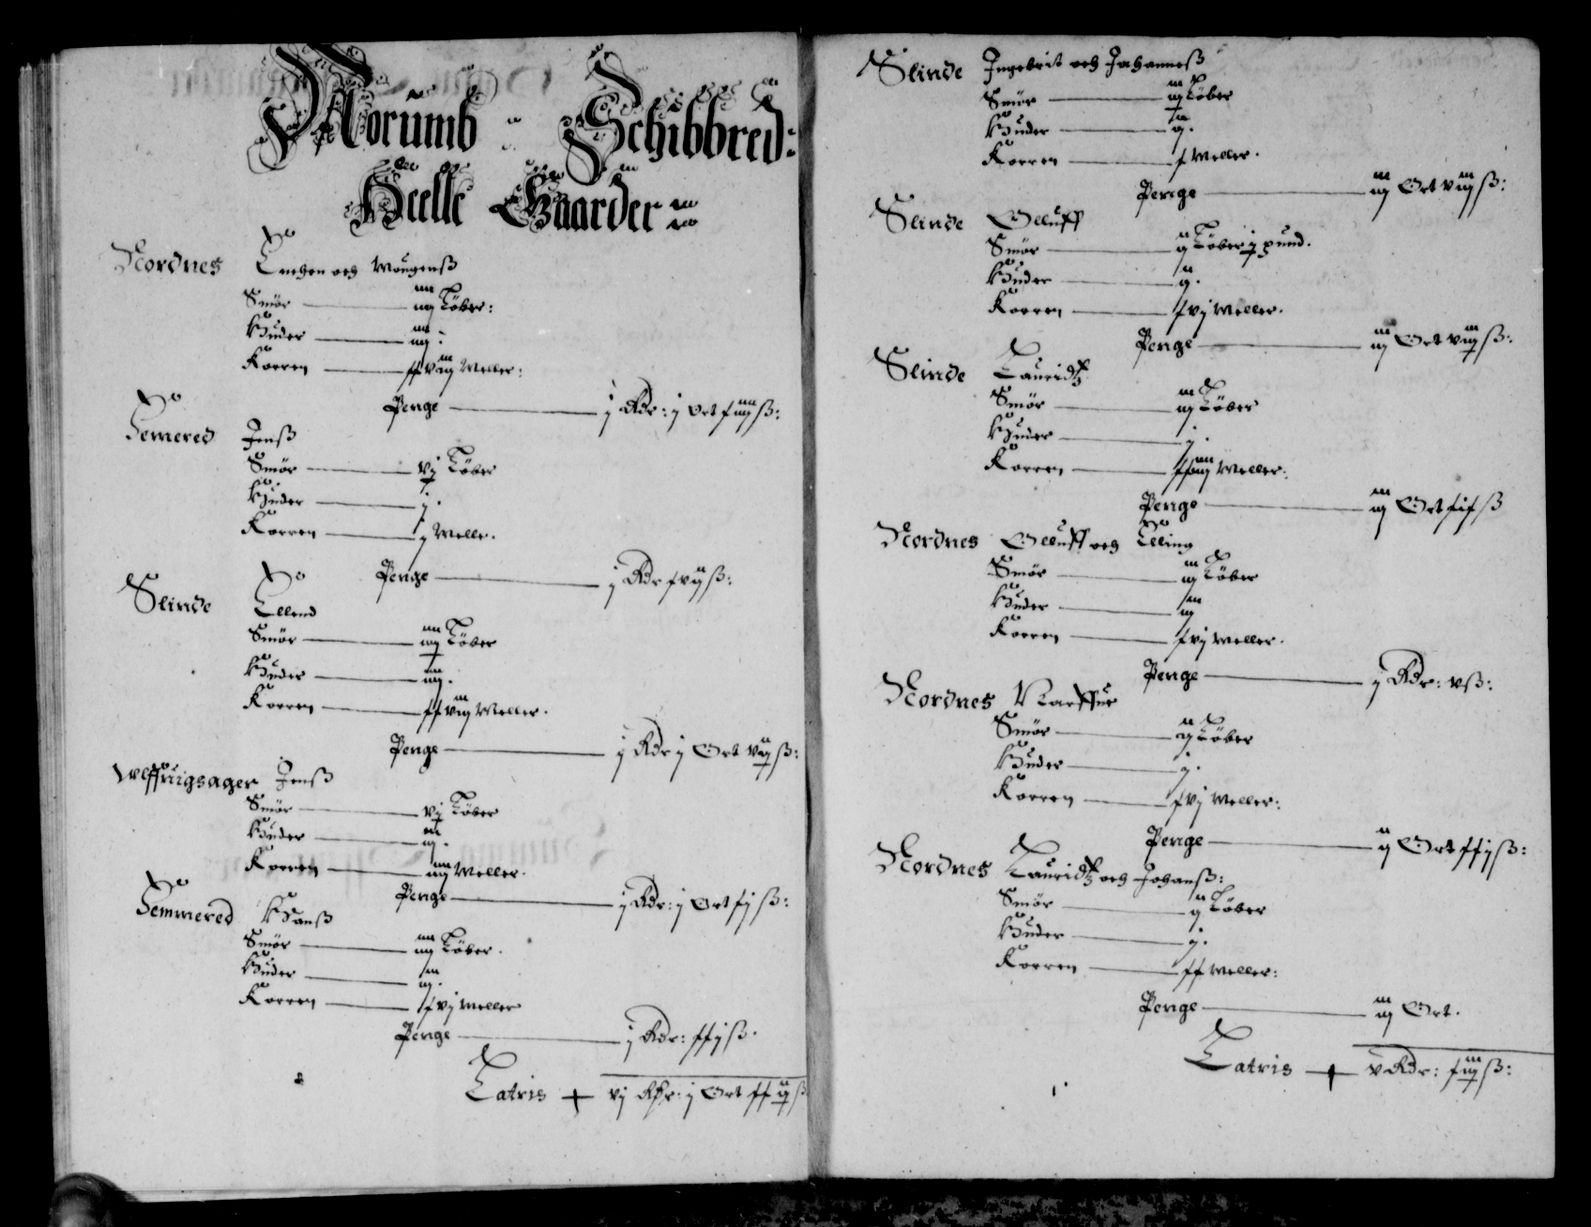 Norumb Schibbred:
Heelle Gaarder
Nordnes Enchen och Mougenß
Smör iiij Löber:
Huder iiij:
Korren xxviij Meller:
Penge j Rdr: j Ort xiiij ß:
Semered Jenß
Smör vj Löber
Huder j.
Korren x Melle.
Penge j Rdr xvij ß:
Slinde Ellend
Smör iiij Löber
Huder iiij.
Korren xxviij Meller.
Penge j Rdr j Ort vij ß:
Jenß
Smör vj Löber
Huder iij.
Korren iiij Meller.
Penge j Rdr: j Ort xj ß:
Semmered Hanß
Smör iiij Löber.
Huder iij.
Korren xvj Meller
Penge j Rdr: xxj ß.
Latris + vj Rdr: j Ort xxij ß
Slinde Ingebrit och Johanneß
Smör iij Löber
Huder ij.
Korren x Meller.
Penge iij Ort viij ß:
Slinde Olluff
Smör ij Löber j pund.
Huder ij.
Korren xvj Meller.
Penge iij Ort viij ß:
Slinde Lauridtz
Smör iij Löber
Huder j.
Korren Meller.
Penge iij Ort ß
Nordnes Olluff och Elling
Smör iij Löber
Huder iij
Korren xvj Meller.
Penge j Rdr: v ß:
Nordnes
Smör ij Löber
Huder j.
Korren xvj Meller:
Penge ij Ort xxj ß:
Nordnes Lauridtz och Johanß:
Smör ij Löber
Huder j.
Korren xx Meller:
Penge iij Ort.
Latris + v Rdr: xiij ß: